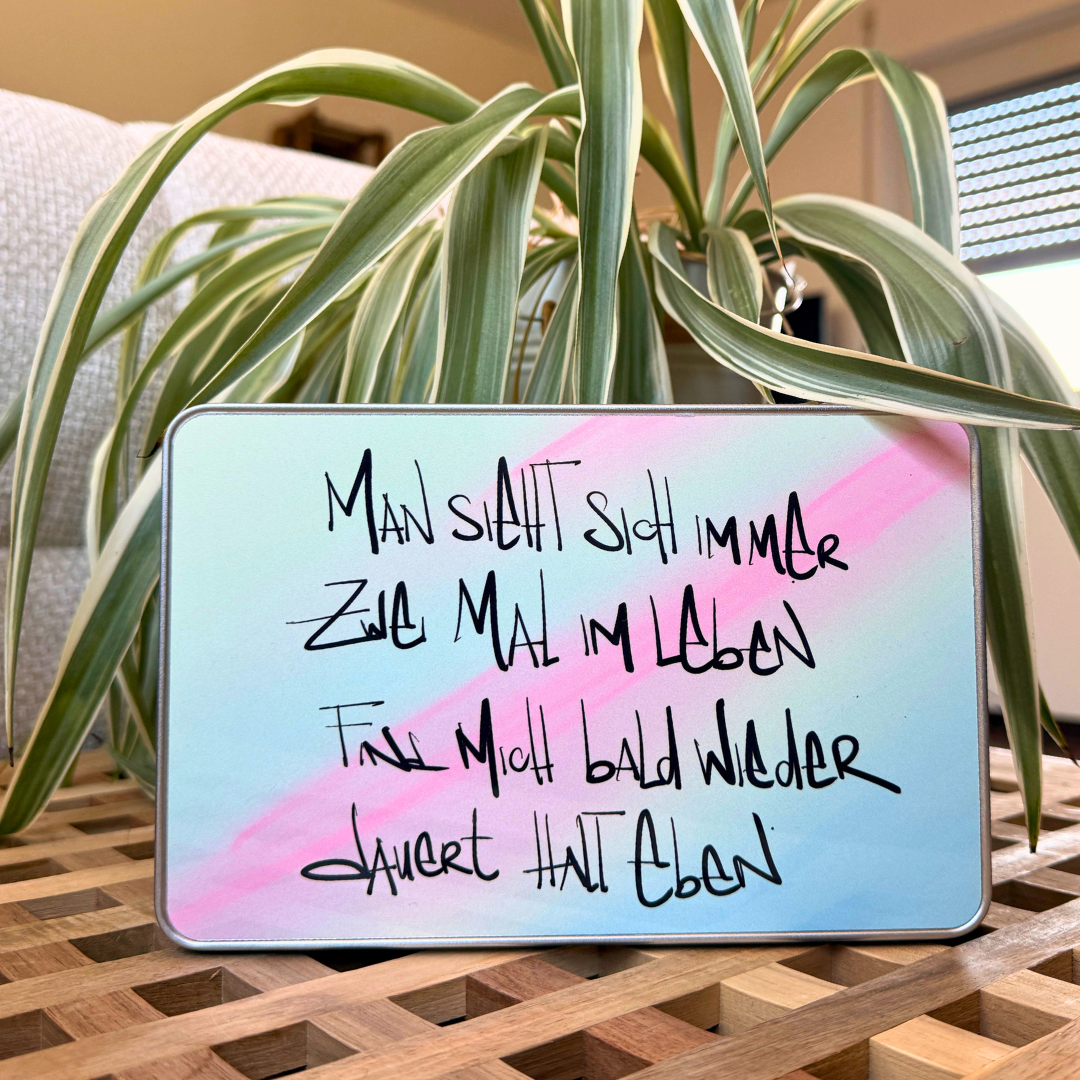 MAN SIEHT SICH IMMER
ZWE MAL IM LEBEN
FIND MICH BALD WIEDER
DAUERT HALT EBEN